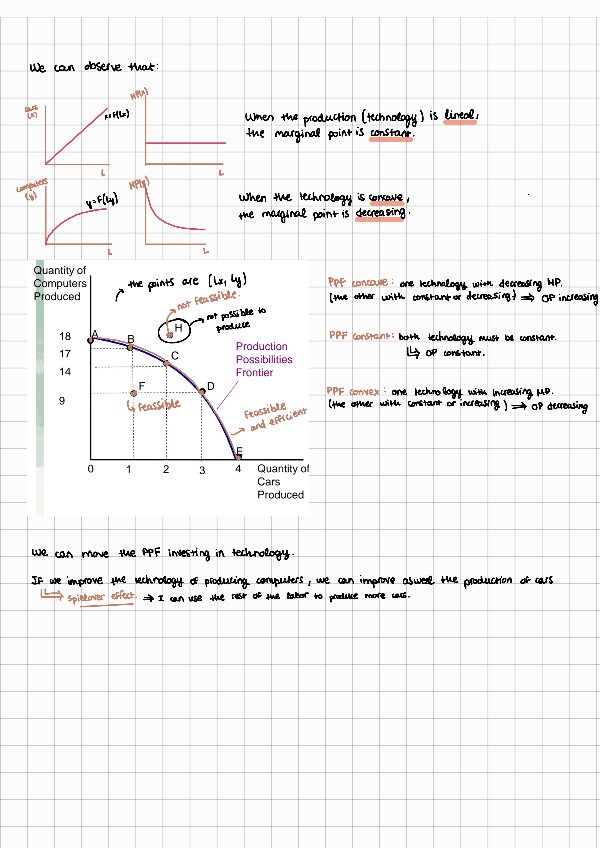 We can observe that:
cars
(x)
x=F(Lx)
L
MP(x)
L
When the production (technology) is lineal,
the marginal point is constant.
computers
(y)
y=F(Ly)
L
MP(y)
L
When the technology is concave,
the marginal point is decreasing.
Quantity of
Computers
Produced
the points are (Lx, Ly)
not feasible.
H
not possible to
produce
18
17
14
9
A
B
C
D
E
F
feasible
Production
Possibilities
Frontier
Feasible
and efficient
0 1 2 3 4
Quantity of
Cars
Produced
PPF concave: one technology with decreasing MP.
(the other with constant or decreasing) ⟹ OP increasing
PPF constant: both technology must be constant.
↳ OP constant.
PPF convex: one technology with increasing MP.
(the other with constant or increasing) ⟹ OP decreasing
We can move the PPF investing in technology.
If we improve the technology of producing computers, we can improve aswell the production of cars
↳ spillover effect. ⟹ I can use the rest of the labor to produce more cars.